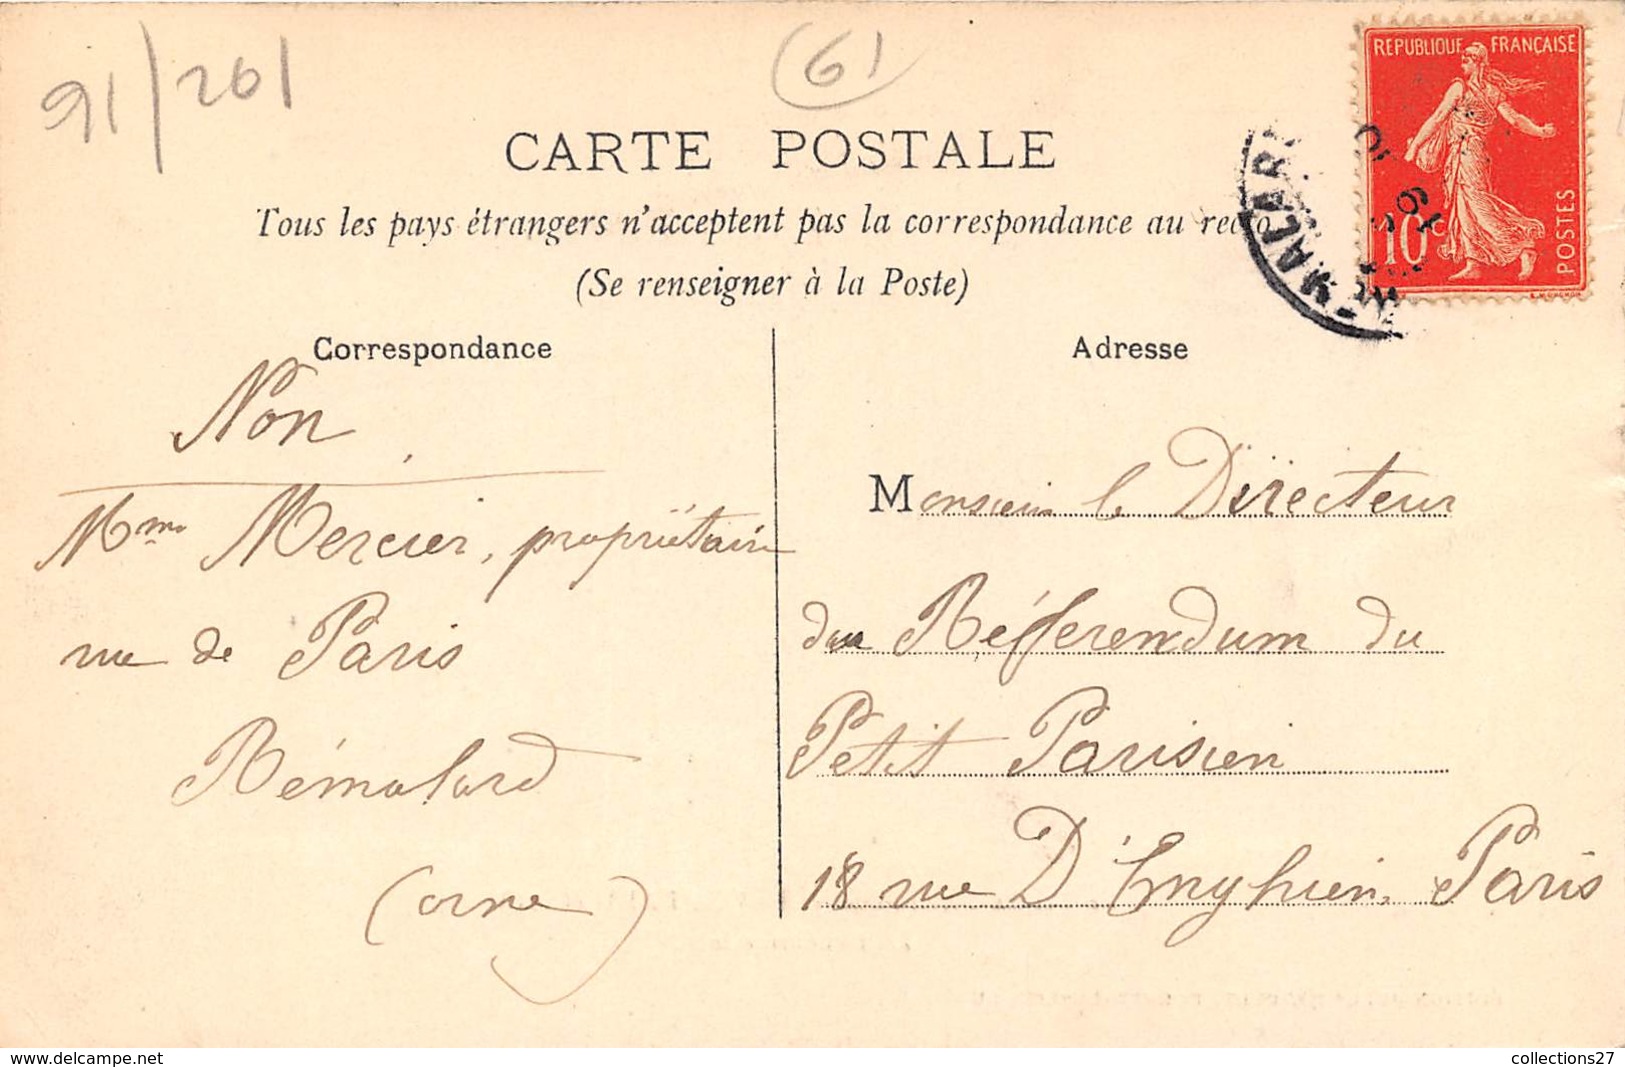 91/201
61
RÉPUBLIQUE FRANÇAISE
10c
POSTES
CARTE POSTALE
Tous les pays étrangers n'acceptent pas la correspondance au recto
(Se renseigner à la Poste)
Correspondance
Non
Mme Mercier, propriétaire
rue de Paris
Rémalard
(orne)
Adresse
Monsieur le Directeur
du Référendum du
Petit Parisien
18 rue D'Enghien, Paris
collections27